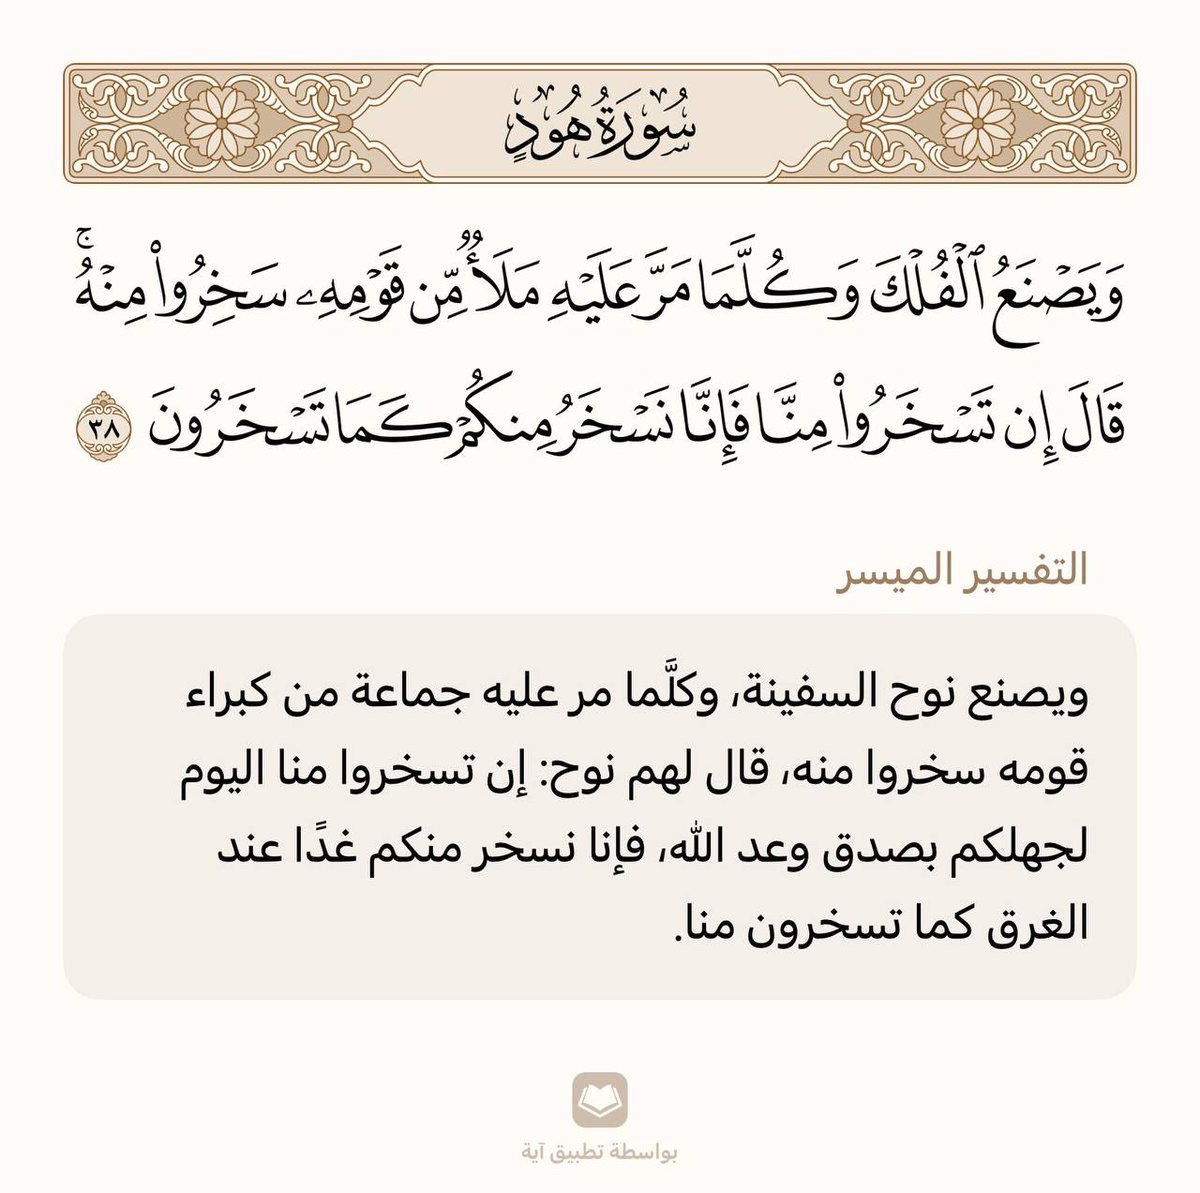 سُورَةُ هُودٍ
وَيَصْنَعُ ٱلْفُلْكَ وَكُلَّمَا مَرَّ عَلَيْهِ مَلَأٌ مِّن قَوْمِهِۦ سَخِرُوا۟ مِنْهُ ۚ
قَالَ إِن تَسْخَرُوا۟ مِنَّا فَإِنَّا نَسْخَرُ مِنكُمْ كَمَا تَسْخَرُونَ ٣٨
التفسير الميسر
ويصنع نوح السفينة، وكلَّما مر عليه جماعة من كبراء
قومه سخروا منه، قال لهم نوح: إن تسخروا منا اليوم
لجهلكم بصدق وعد الله، فإنا نسخر منكم غدًا عند
الغرق كما تسخرون منا.
بواسطة تطبيق آية